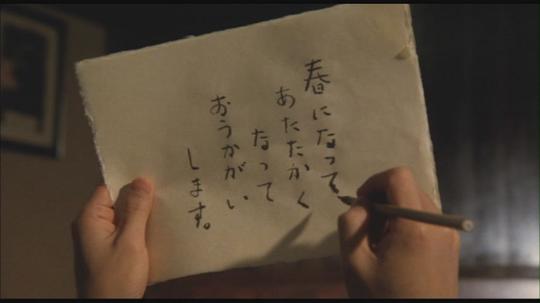 春になって、
あたたかく
なって
おうかがい
します。